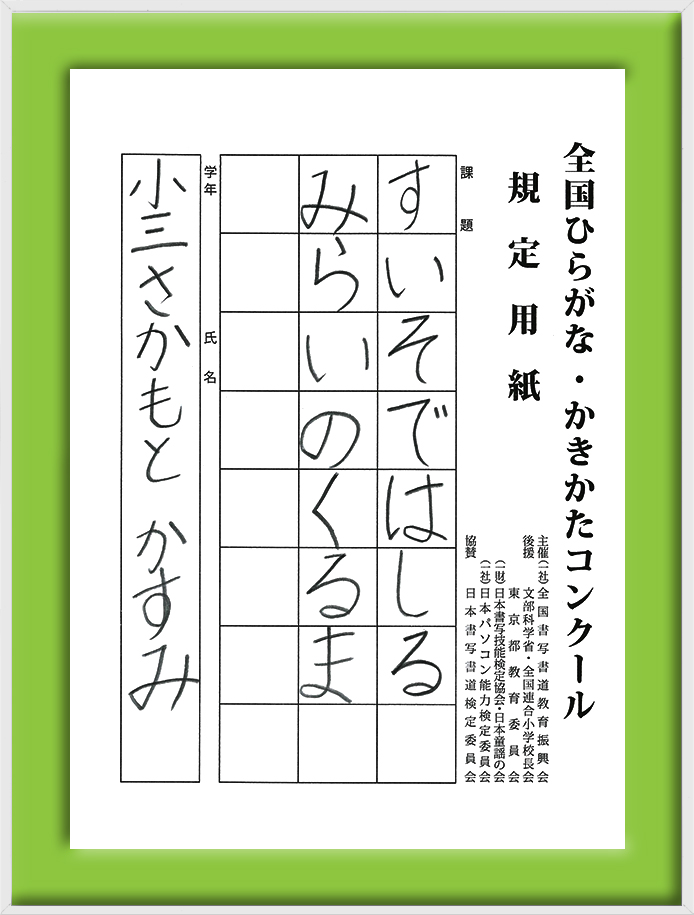 全国ひらがな・かきかたコンクール
規定用紙
主催(一社)全国書写書道教育振興会
後援 文部科学省・全国連合小学校長会
東京都教育委員会
(一財)日本書写技能検定協会・日本童謡の会
(一社)日本パソコン能力検定委員会
協賛 日本書写書道検定委員会
課題
すいそではしる
みらいのくるま
学年 氏名
小三さかもと かすみ